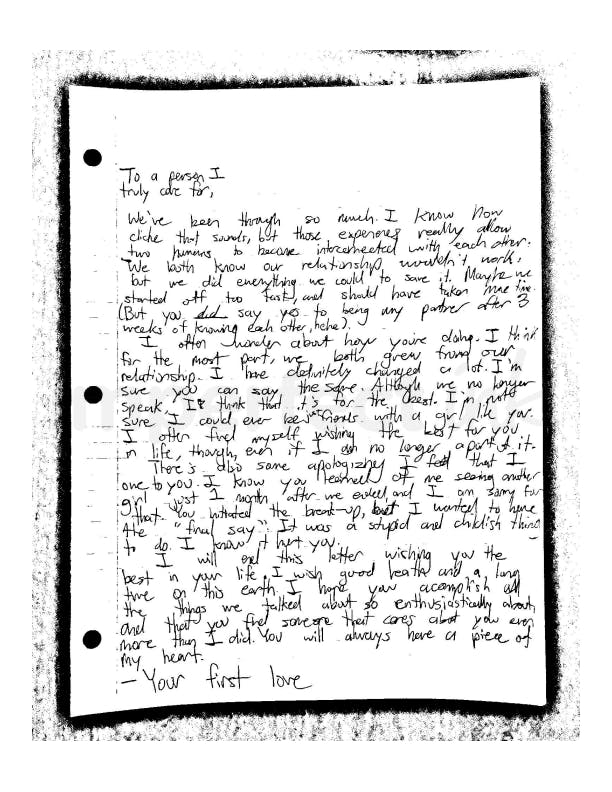 To a person I
truly care for,
We've been through so much. I know how
cliche that sounds, but those experiences really allow
two humans to become interconnected with each other.
We both know our relationship wouldn't work,
but we did everything we could to save it. Maybe we
started off too fast, and should have taken more time.
(But you did say yes to being my partner after 3
weeks of knowing each other, hehe).
I often wonder about how you're doing. I think
for the most part, we both grew from our
relationship. I have definitely changed a lot. I'm
sure you can say the same. Although we no longer
speak, I think that it's for the best. I'm not
sure I could ever be just friends with a girl like you.
I often find myself wishing the best for you
in life, though, even if I am no longer apart of it.
There's also some apologizing I feel that I
one to you. I know you learned of me seeing another
girl just 1 month after we ended, and I am sorry for
that. You initiated the break-up, but I wanted to have
the "final say". It was a stupid and childish thing
to do. I know it hurt you.
I will end this letter wishing you the
best in your life. I wish good health and a long
time on this earth. I hope you acomplish all
the things we talked about so enthusiastically about,
and that you find someone that cares about you even
more than I did. You will always have a piece of
my heart.
- Your first love